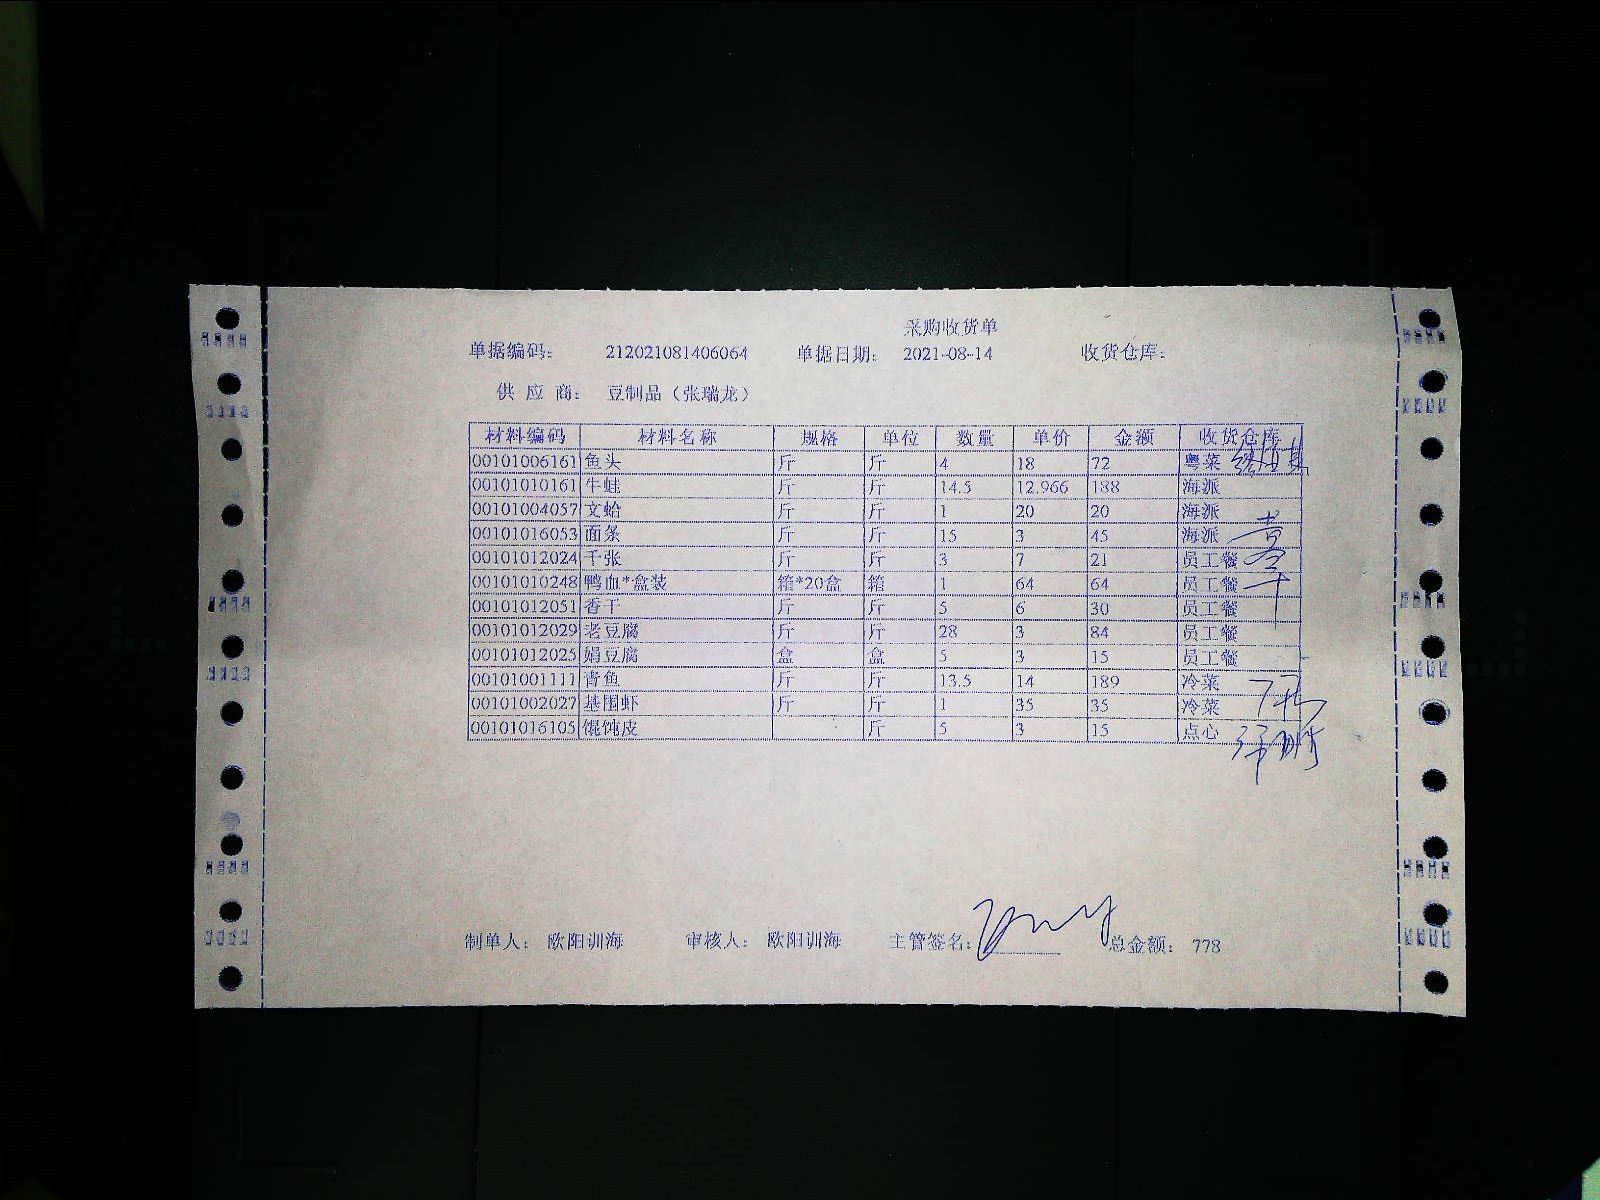 采购收货单
单据编码： 212021081406064 单据日期： 2021-08-14 收货仓库：
供 应 商： 豆制品（张瑞龙）
材料编码 材料名称 规格 单位 数量 单价 金额 收货仓库
00101006161 鱼头 斤 斤 4 18 72 粤菜
00101010161 牛蛙 斤 斤 14.5 12.966 188 海派
00101004057 文蛤 斤 斤 1 20 20 海派
00101016053 面条 斤 斤 15 3 45 海派
00101012024 千张 斤 斤 3 7 21 员工餐
00101010248 鸭血*盒装 箱*20盒 箱 1 64 64 员工餐
00101012051 香干 斤 斤 5 6 30 员工餐
00101012029 老豆腐 斤 斤 28 3 84 员工餐
00101012025 娟豆腐 盒 盒 5 3 15 员工餐
00101001111 青鱼 斤 斤 13.5 14 189 冷菜
00101002027 基围虾 斤 斤 1 35 35 冷菜
00101016105 馄饨皮 斤 5 3 15 点心
制单人： 欧阳训海 审核人： 欧阳训海 主管签名： 总金额： 778